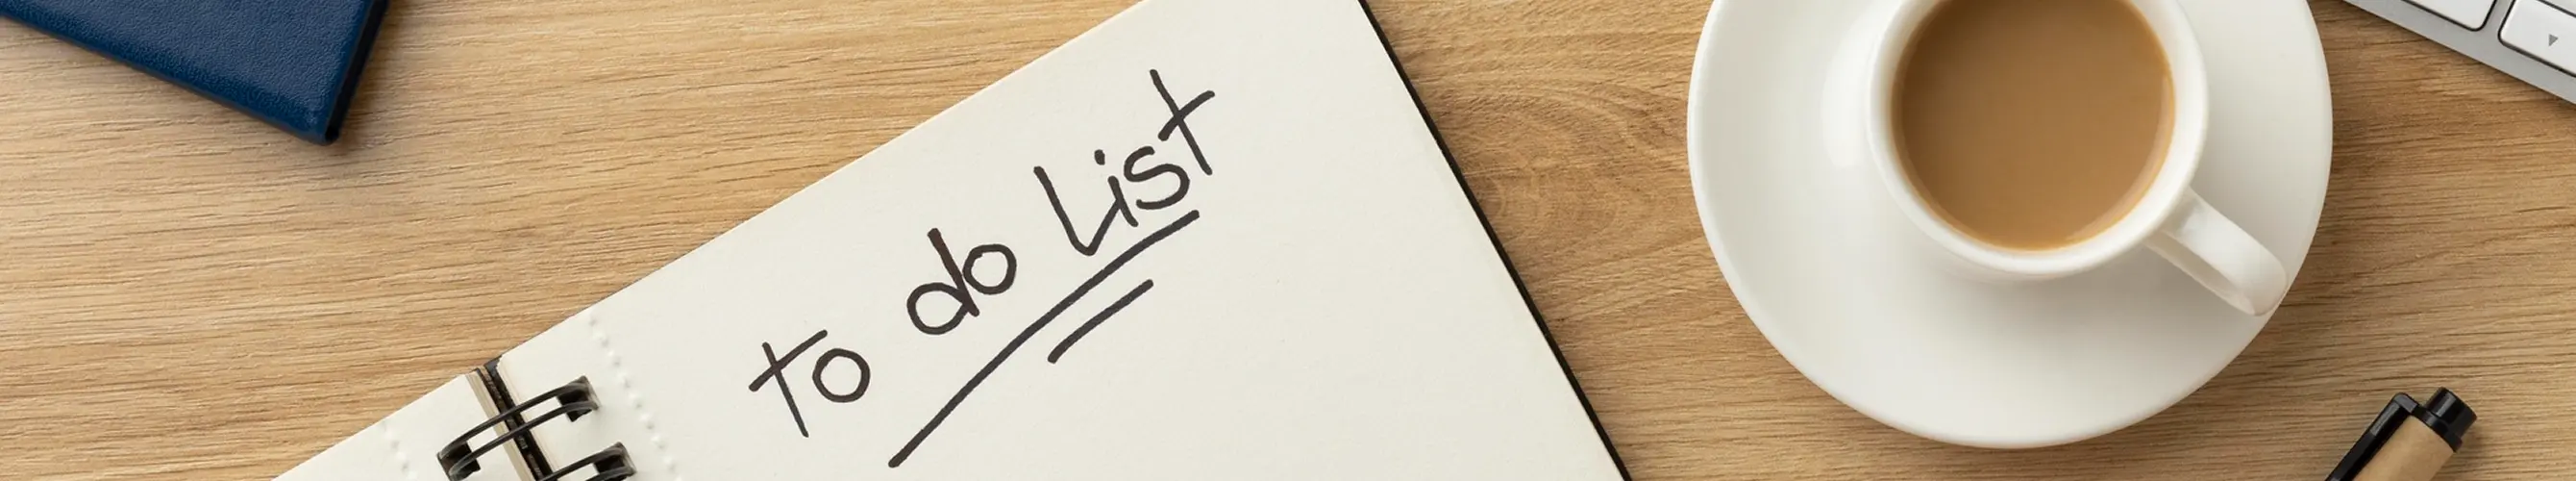 to do List